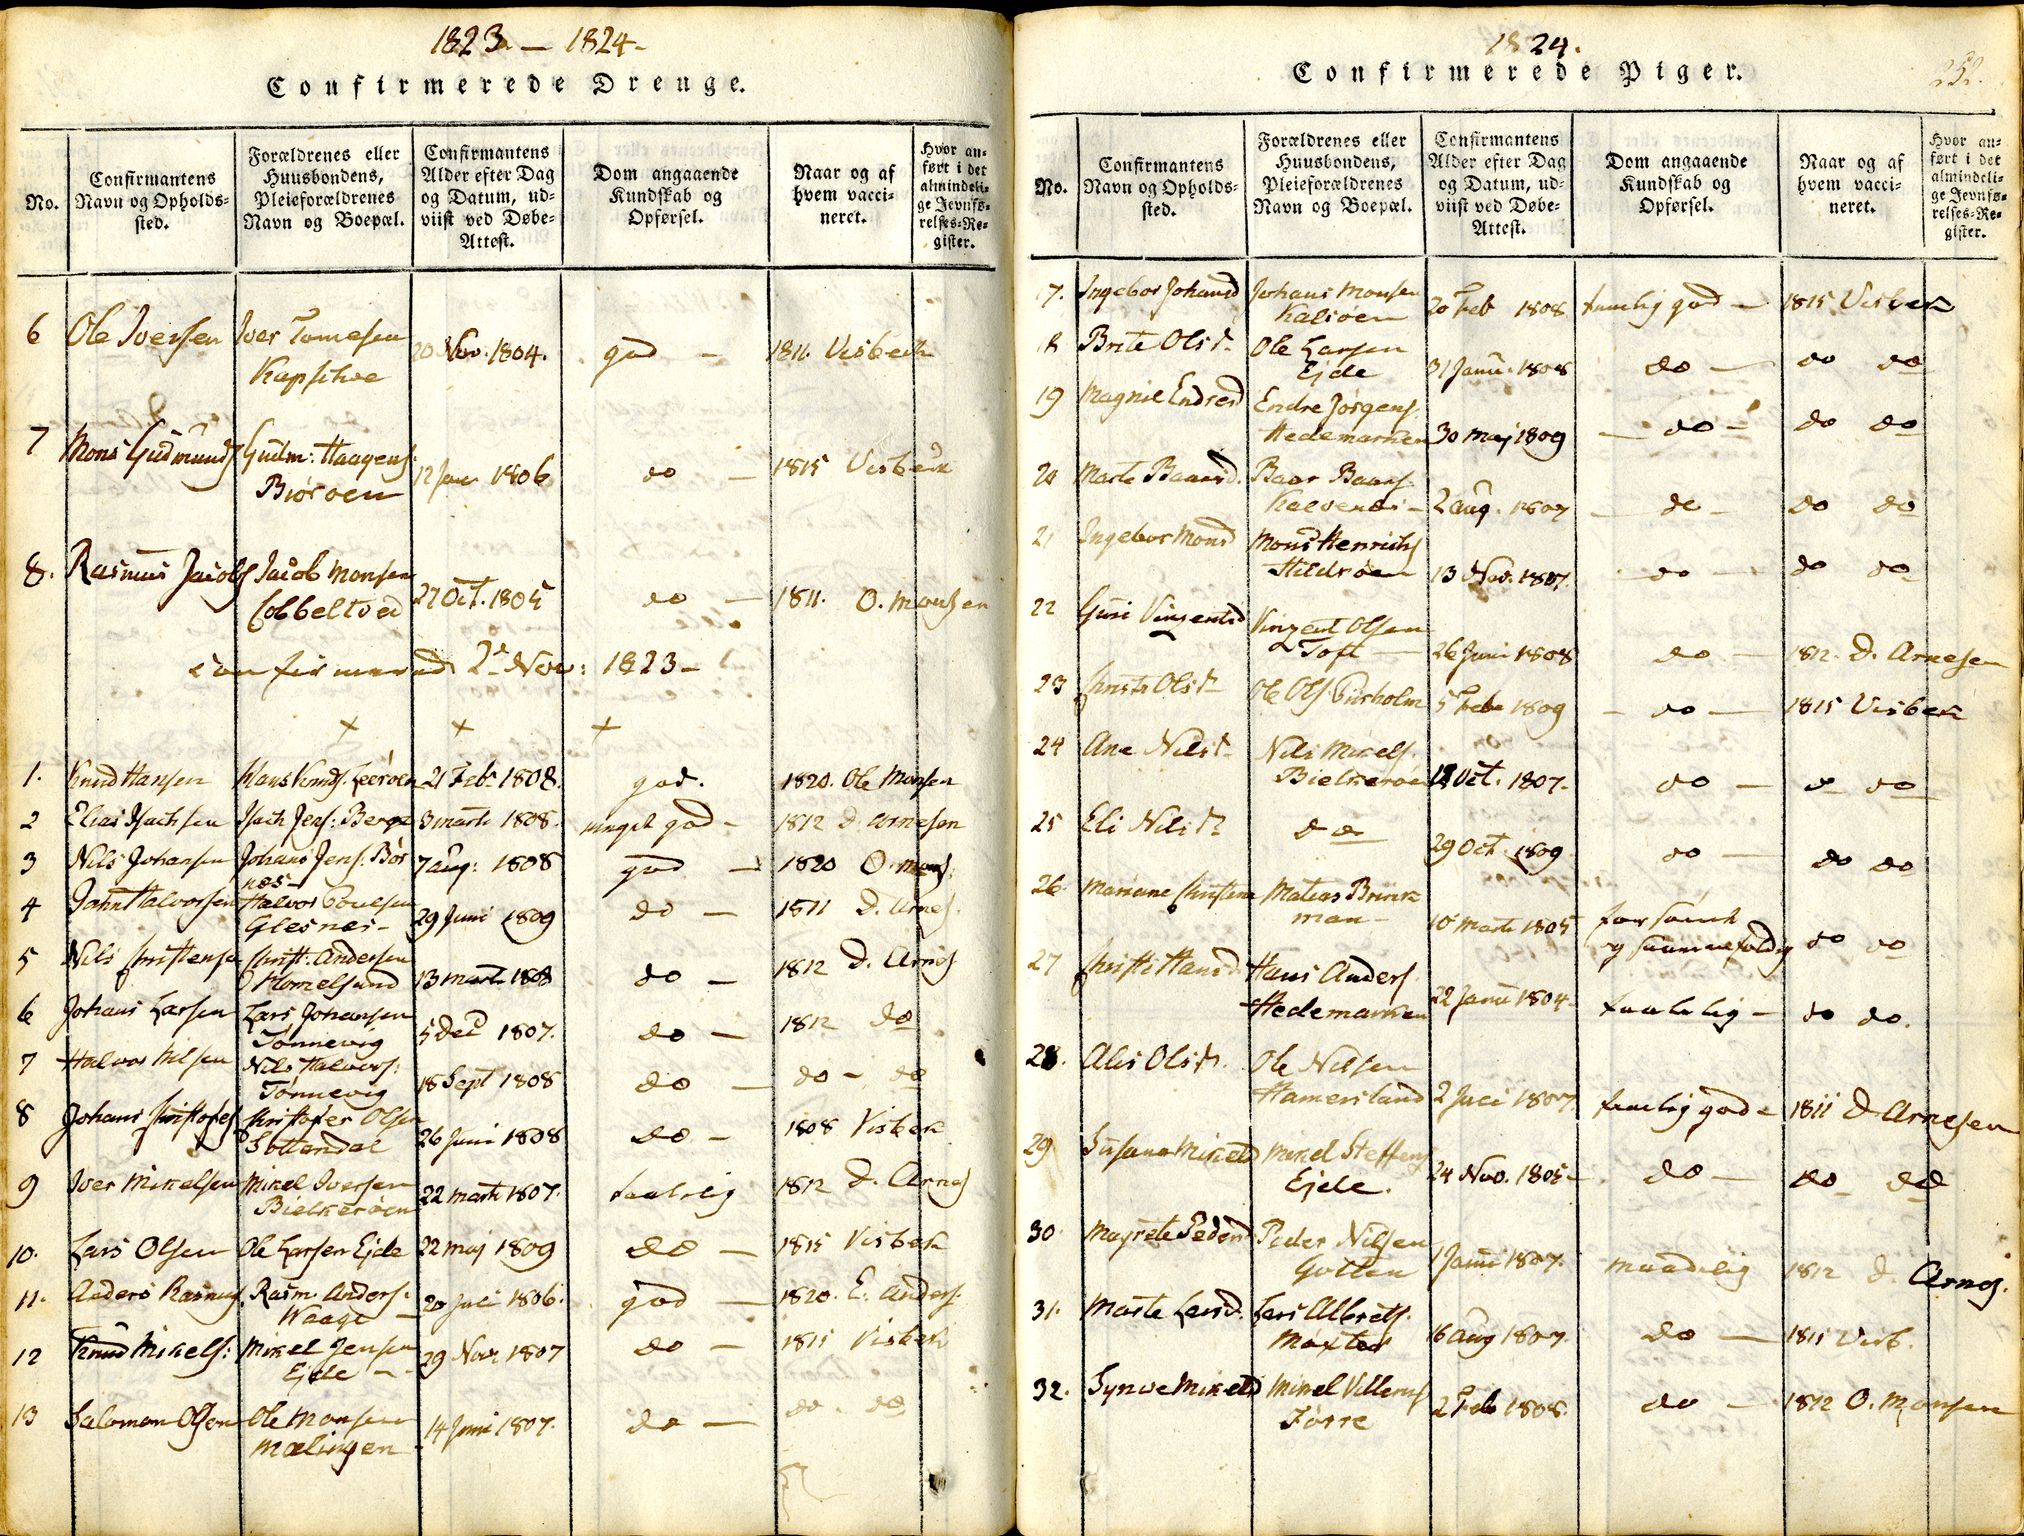 1823 — 1824
Confirmerede Drenge.
No.
Confirmantens Navn og Opholds-sted.
Forældrenes eller Huusbondens, Pleieforældrenes Navn og Boepæl.
Confirmantens Alder efter Dag og Datum, ud-viist ved Døbe-Attest.
Dom angaaende Kundskab og Opførsel.
Naar og af hvem vacci-neret.
Hvor an-ført i det almindeli-ge Jevnfø-relses-Re-gister.
6 Ole Iversen Iver Tomesen 20 Nov. 1804. god — 1811. Visbech
7 Mons Gudmunds Gudm: Haagens: 12 Jan 1806 do — 1815 Visbech
Biørøen
8. Rasmus Jacobs Jacob Monsen 27 Oct. 1805 do — 1811. O. Monsen
Cobbeltved
Confirmered 2d Nov: 1823 —
1. Knud Hansen Hans Knuds. Leerøen 21 Feb 1808. god. 1820. Ole Monsen
2 Elias Isachsen Isach Jens: Berge 3 marti 1808. meget god — 1812 D. Arnesen
3 Nils Johansen Johans Jens: Bør 7 aug: 1808 god — 1820 O. Mons:
næs —
4 John Halvorsen Halvor Povesen 29 Juni 1809 do — 1811 D. Arnes.
Glesnes —
5 Nils Christense Christ: Andersen 13 marti 1808 do — 1812 D. Arnes
Homelsund
6 Johans Larsen Lars Johansen 5 Dec 1807. do — 1812 do
Tønnevig
7 Halvor Nilsen Nils Halvors: 18 Sept 1808 do — do — do
Tønnevig
8 Johans Christofes Christofer Olsen 26 Juni 1808 do — 1808 Visbek
Sottendal
9 Iver Mikelsen Mikel Iversen 22 marti 1807. taalelig 1812 D. Arnes
Bielkerøen
10. Lars Olsen Ole Larsen Ejde 22 maj 1809 do — 1815 Visbek
11. Anders Rasmus. Rasm. Anders. 20 Juli 1806. god — 1820. E. Anders.
Waage —
12 Knud Mikels: Mikel Jensen 29 Nov 1807 do — 1811 Visbek
Ejde —
13 Salomon Olsen Ole Monsen 14 Juni 1807. do — do. do
Mælingen
1824.
Confirmerede Piger.
252.
No.
Confirmantens Navn og Opholds-sted.
Forældrenes eller Huusbondens, Pleieforældrenes Navn og Boepæl.
Confirmantens Alder efter Dag og Datum, ud-viist ved Døbe-Attest.
Dom angaaende Kundskab og Opførsel.
Naar og af hvem vacci-neret.
Hvor an-ført i det almindeli-ge Jevnfø-relses-Re-gister.
17. Ingebor Johansd Johans Monsen 20 Feb 1808 temelig god — 1815 Visbek
Kalsøen
18 Brite Olsd. Ole Larsen 31 Janu. 1808 do — do do
Ejde
19 Magnile Endresd Endre Jørgens. 30 maj 1809 — do — do do
Hedemarken
20 Marte Baarsd. Baar Baars. 2 aug. 1807 — do — do do
21 Ingebor Monsd Mons Henrichs 13 Nov. 1807. do — do do
Hildrøen
22 Guri Vinzentsd Vinzent Olsen 26 Juni 1808 do — 1812. D. Arnesen
Toft —
23 Christi Olsd. Ole Ols. 5 Feb 1809 — do — 1815 Visbek
24 Ane Nilsd. Nils Mikels. 12 Oct. 1807. do — do do
Bielkerøen
25 Eli Nilsd. do 29 Oct. 1809 do — do do
26 Mariane Christiana Matias Brink 10 Marti 1805 forsømt do do
man — og
27 Christi Hansd. Hans Anders. 22 Janu 1804 — taalelig — do do.
Hedemarken
28. Alis Olsd. Ole Nilsen 2 Juli 1807 temelig god — 1811 D. Arnesen
Hamersland
29 Susana Mikelsd Mikel Steffens 24 Nov. 1805 — do — do do
Ejde.
30 Magrete Pedersd Peder Nilsen 1 Janu 1807. maadelig 1812 D. Arnes.
Gotten
31. Marte Larsd. Lars Albrets. 16 aug 1807. do — 1811 Visb.
32. Synve Mikelsd Mikel Villums 2 Feb 1808. do — 1812 O. Monsen
Tørre